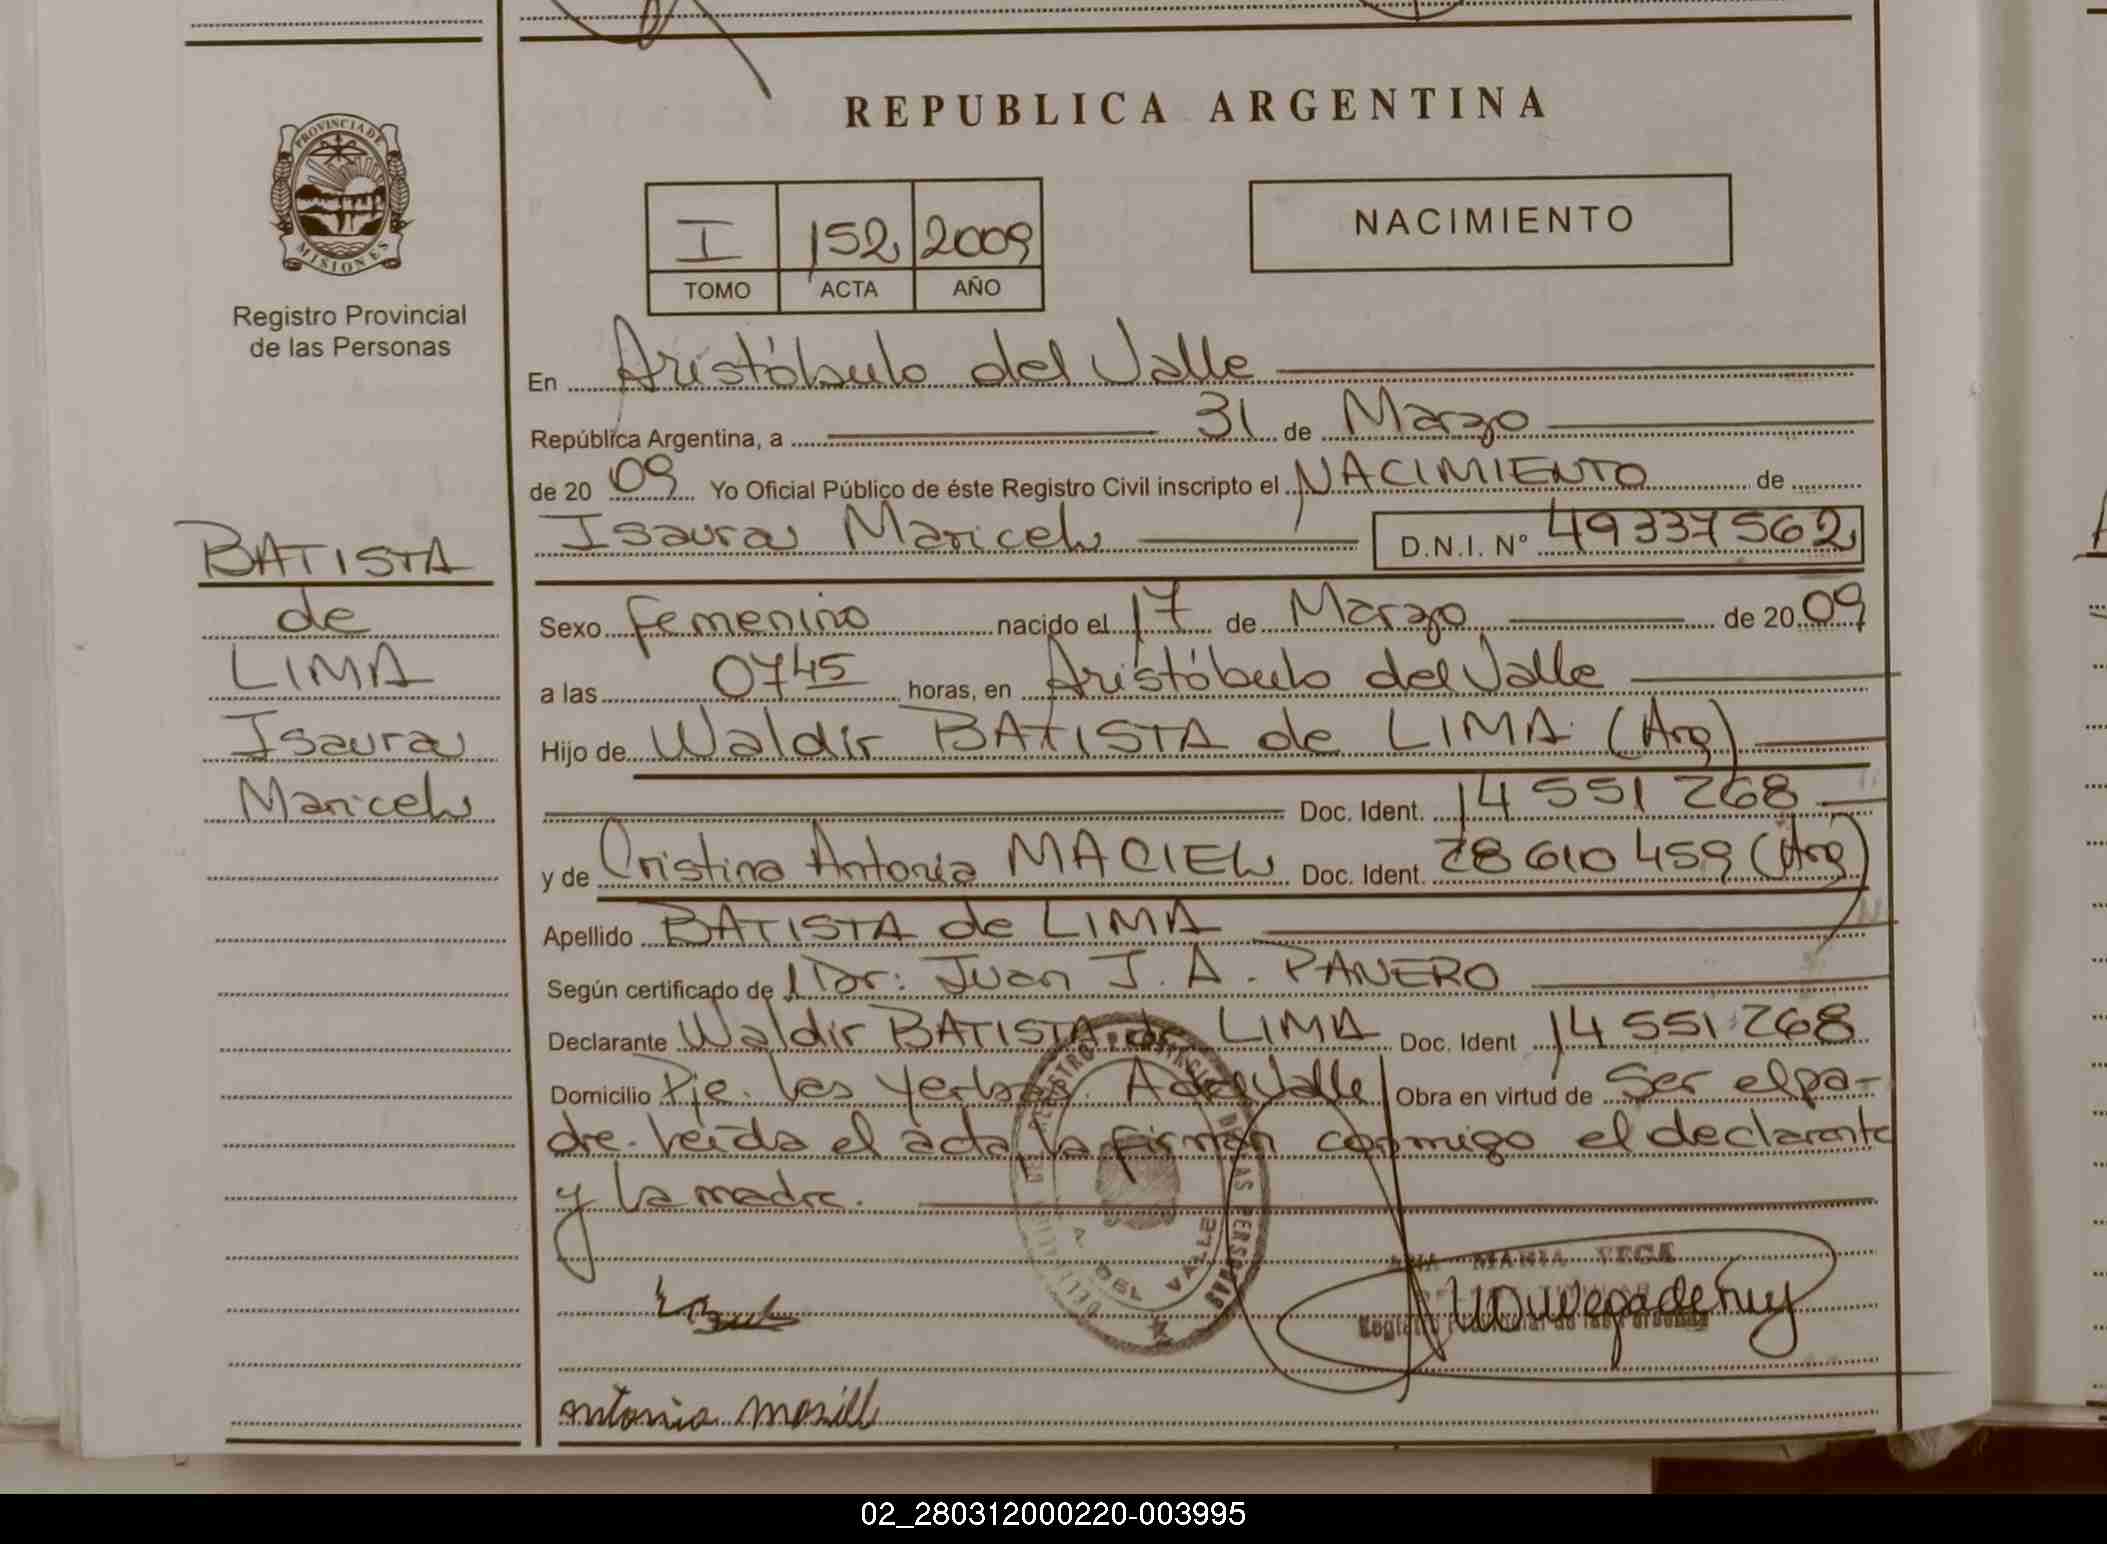 REPUBLICA ARGENTINA
PROVINCIA DE
MISIONES
Registro Provincial
de las Personas
I 152 2009
TOMO ACTA AÑO
NACIMIENTO
En Aristóbulo del Valle
República Argentina, a 31 de Marzo
de 2009 Yo Oficial Público de éste Registro Civil inscripto el NACIMIENTO de
Isaura Maricel
D.N.I. N° 49337562
BATISTA
de
LIMA
Isaura
Maricel
Sexo Femenino nacido el 17 de Marzo de 2009
a las 0745 horas, en Aristóbulo del Valle
Hijo de Waldir BATISTA de LIMA (Arg)
Doc. Ident. 14 551 268
y de Cristina Antonia MACIEL Doc. Ident. 28 610 459 (Arg)
Apellido BATISTA de LIMA
Según certificado de Dr: Juan J. A. PANERO
Declarante Waldir BATISTA de LIMA Doc. Ident 14 551 268
Domicilio Pje. Las Yerbas. A del Valle Obra en virtud de Ser el pa-
dre. Leída el acta, la firman conmigo el declarante
y la madre.
A. DEL VALLE
ANA MARIA VEGA
Registro Provincial de las Personas
antonia
02_280312000220-003995